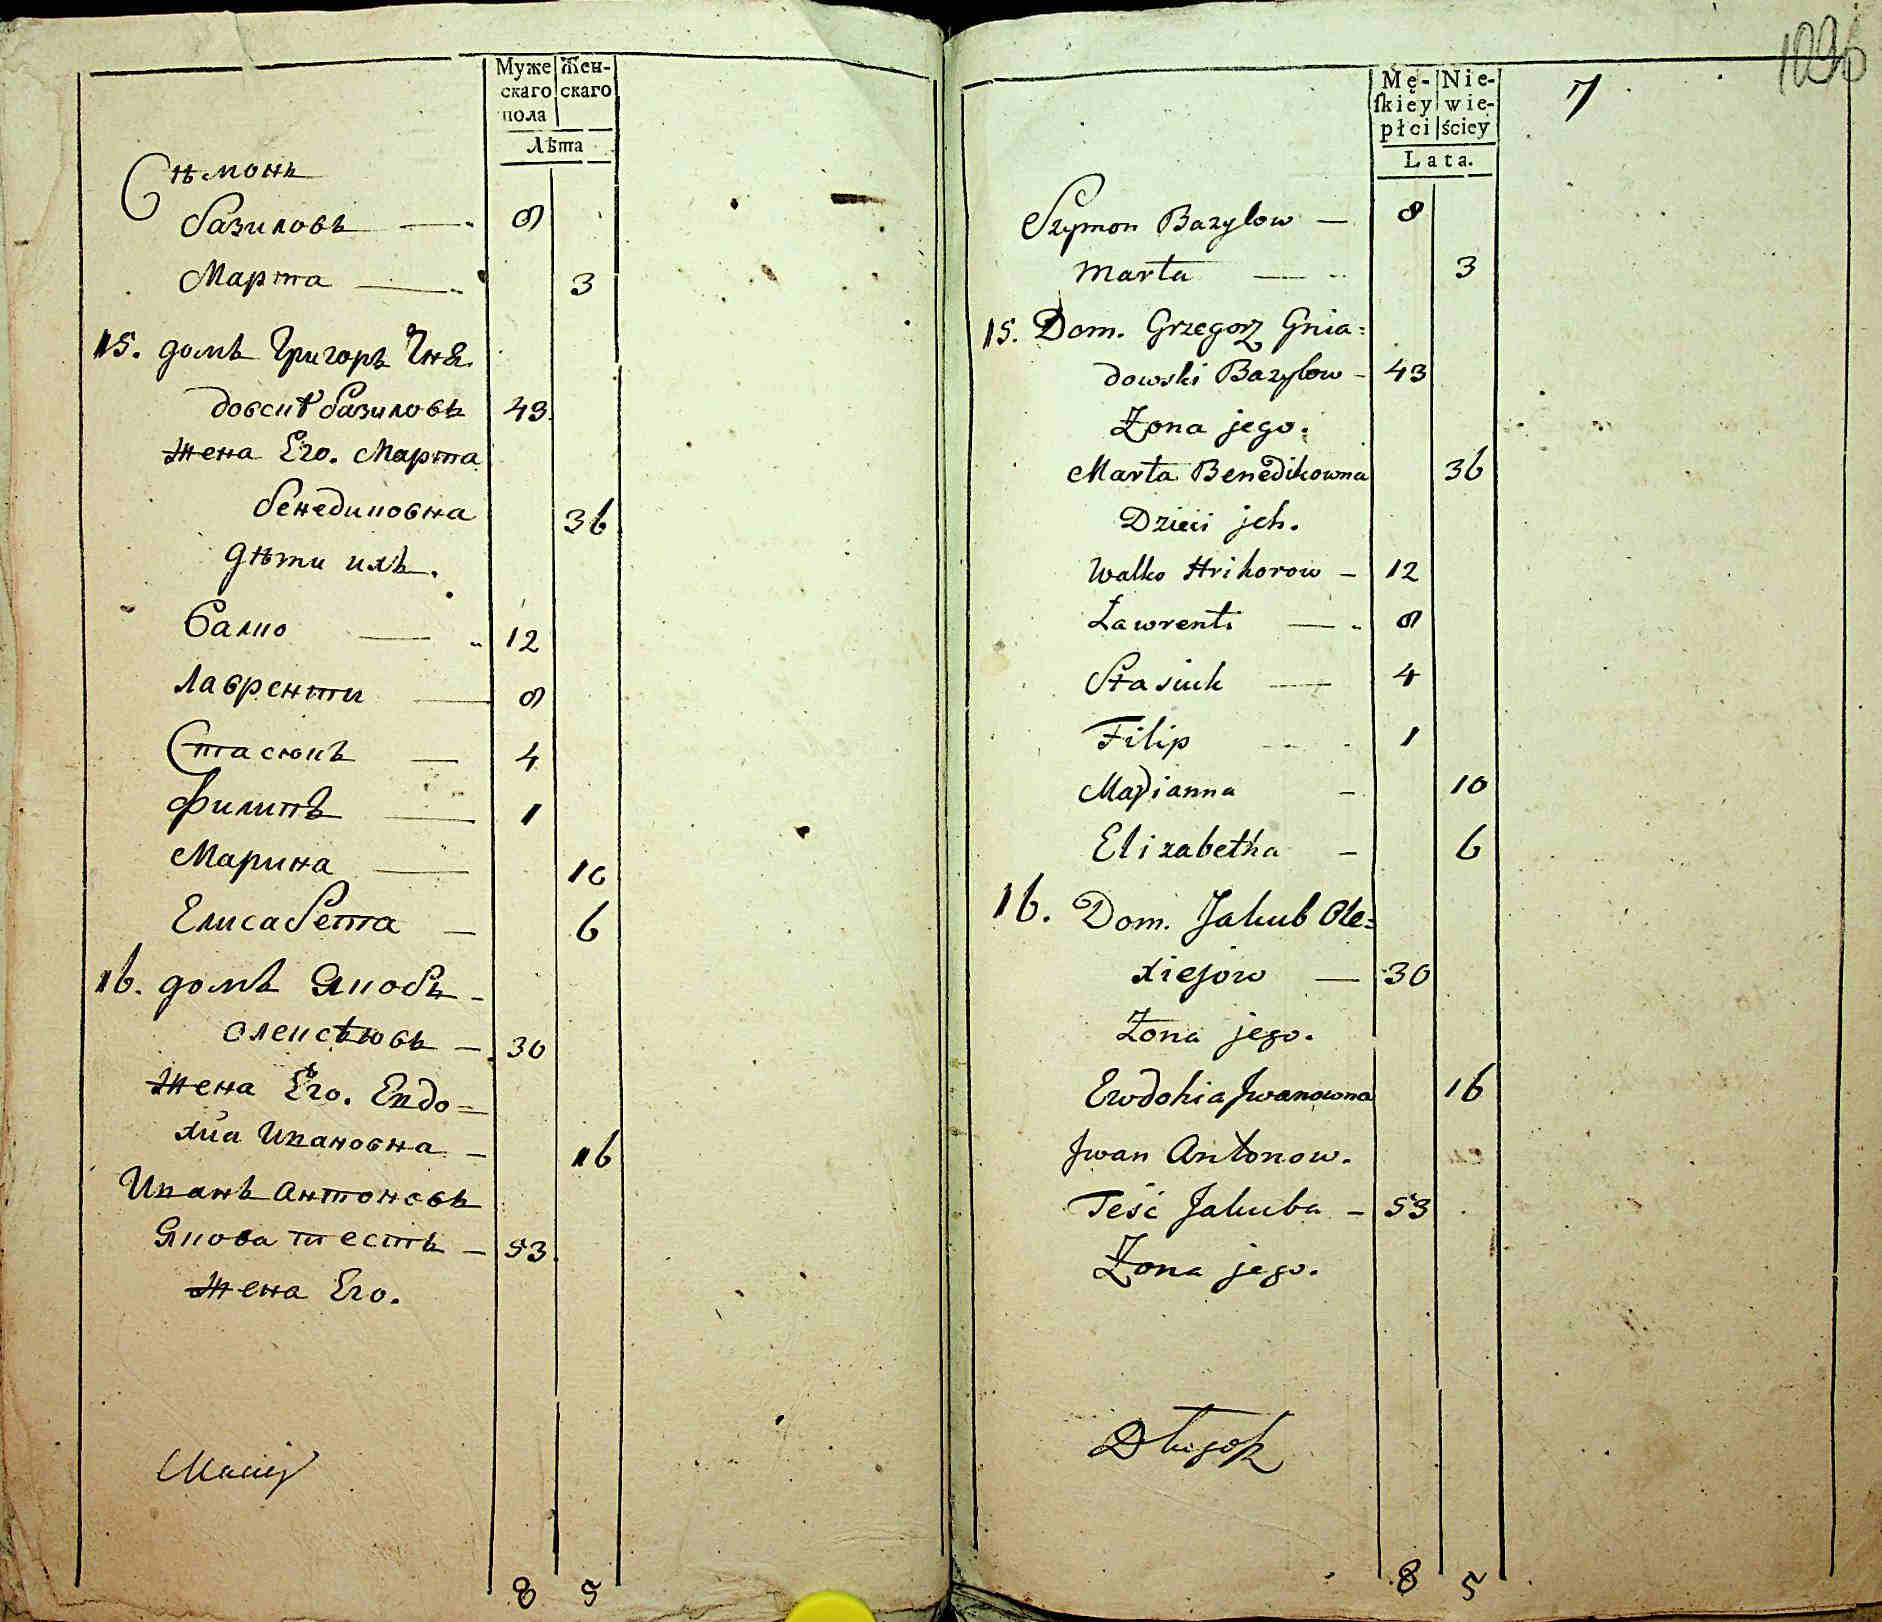 Муже Жен-
скаго скаго
пола
Лѣта
Сѣмонъ
базиловъ — 8
Марта — 3
15. домъ Григоръ Гня
довски базиловъ 43.
Жена Его. Марта
бенедиковна 36
дѣти ихъ.
Валко — 12
Лавренти — 8
Стасюкъ — 4
Филипъ — 1
Марина — 10
Елисабета — 6
16. домъ Якобъ -
олексѣювъ — 30
Жена Его. Евдо=
хиа Ивановна - 16
Иванъ антоновъ
Якова тесть — 53.
Жена Его.
Maciey
8 5
1026
Mę- Nie-
ſkiey wie-
płci ściey
Lata.
7
Szymon Bazylow — 8
Marta — 3
15. Dom. Grzegorz Gnia=
dowski Bazylow - 43
Żona jego.
Marta Benedikowna 36
Dzieci jch.
Walko Hrihorow — 12
Ławrenti — 8
Stasiuk — 4
Filip 1
Marianna — 10
Elizabetha — 6
16. Dom. Jakub Ole=
xiejow — 30
Żona jego.
Ewdokia Jwanowna 16
Jwan Antonow.
Teść Jakuba — 53
Żona jego.
Długosz
8 5